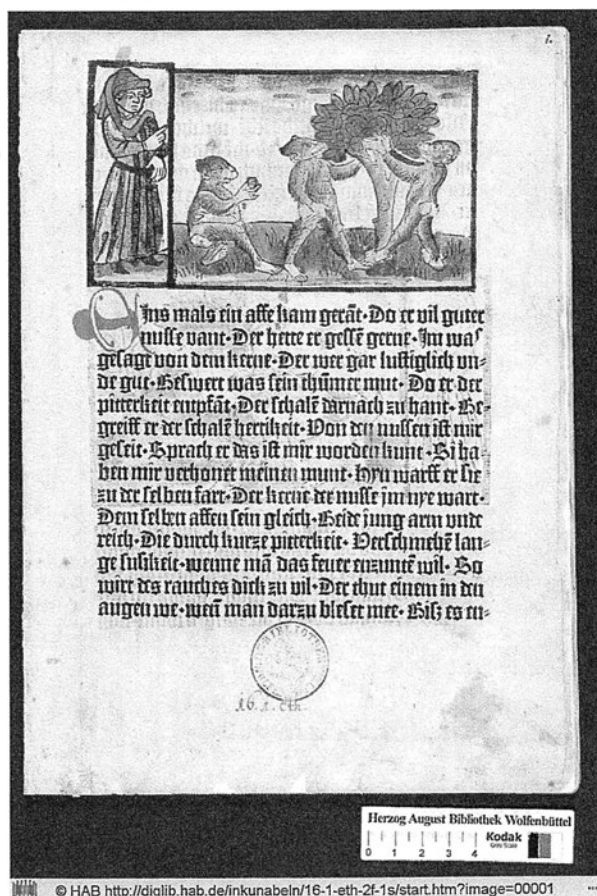 1.
Eins mals ein affe kam gerāt· Do er vil guter
nusse vant· Der hette er gessē gerne· Im was
gesagt von dem kerne· Der wer gar lustiglich vn-
de gut· Beswert was sein thūmer mut· Do er der
pitterkeit entpfāt· Der schalē darnach zu hant· Be-
greiff er der schalē hertikeit· Von den nussen ist mir
geseit· Sprach er das ist mir worden kunt· Si ha-
ben mir verhonet meinen munt· Hyn warff er sie
zu der selben fart· Der kerne der nusse im nye wart·
Dem selben affen sein gleich· Beide jung arm vnde
reich· Die durch kurze pitterkeit· Verschmehē lan-
ge susikeit· wenne mā das feuer enzunten wil· So
wirt des rauches dick zu vil· Der thut einem in den
augen we· wen̄ man darzu bleset mee· Bisz es en-
BIBLIOTHEK
16. 1. Eth.
Herzog August Bibliothek Wolfenbüttel
0 1 2 3 4
Kodak
Grey Scale
© HAB http://diglib.hab.de/inkunabeln/16-1-eth-2f-1s/start.htm?image=00001